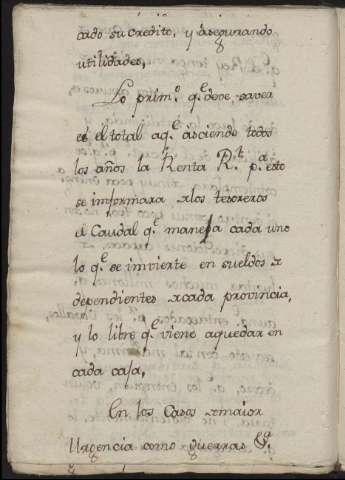 cado su credito, y asegurando
utilidades,
Lo prim.º q.e deve saver
es el total aq.e asciende todos
los años la Renta R.l p.a esto
se informara a los tesoreros
el Caudal q.e maneja cada uno
lo q.e se invierte en sueldos de
dependientes de cada provincia,
y lo libre q.e viene aquedar en
cada casa,
En los Casos de maior
Urgencia como guerras &.